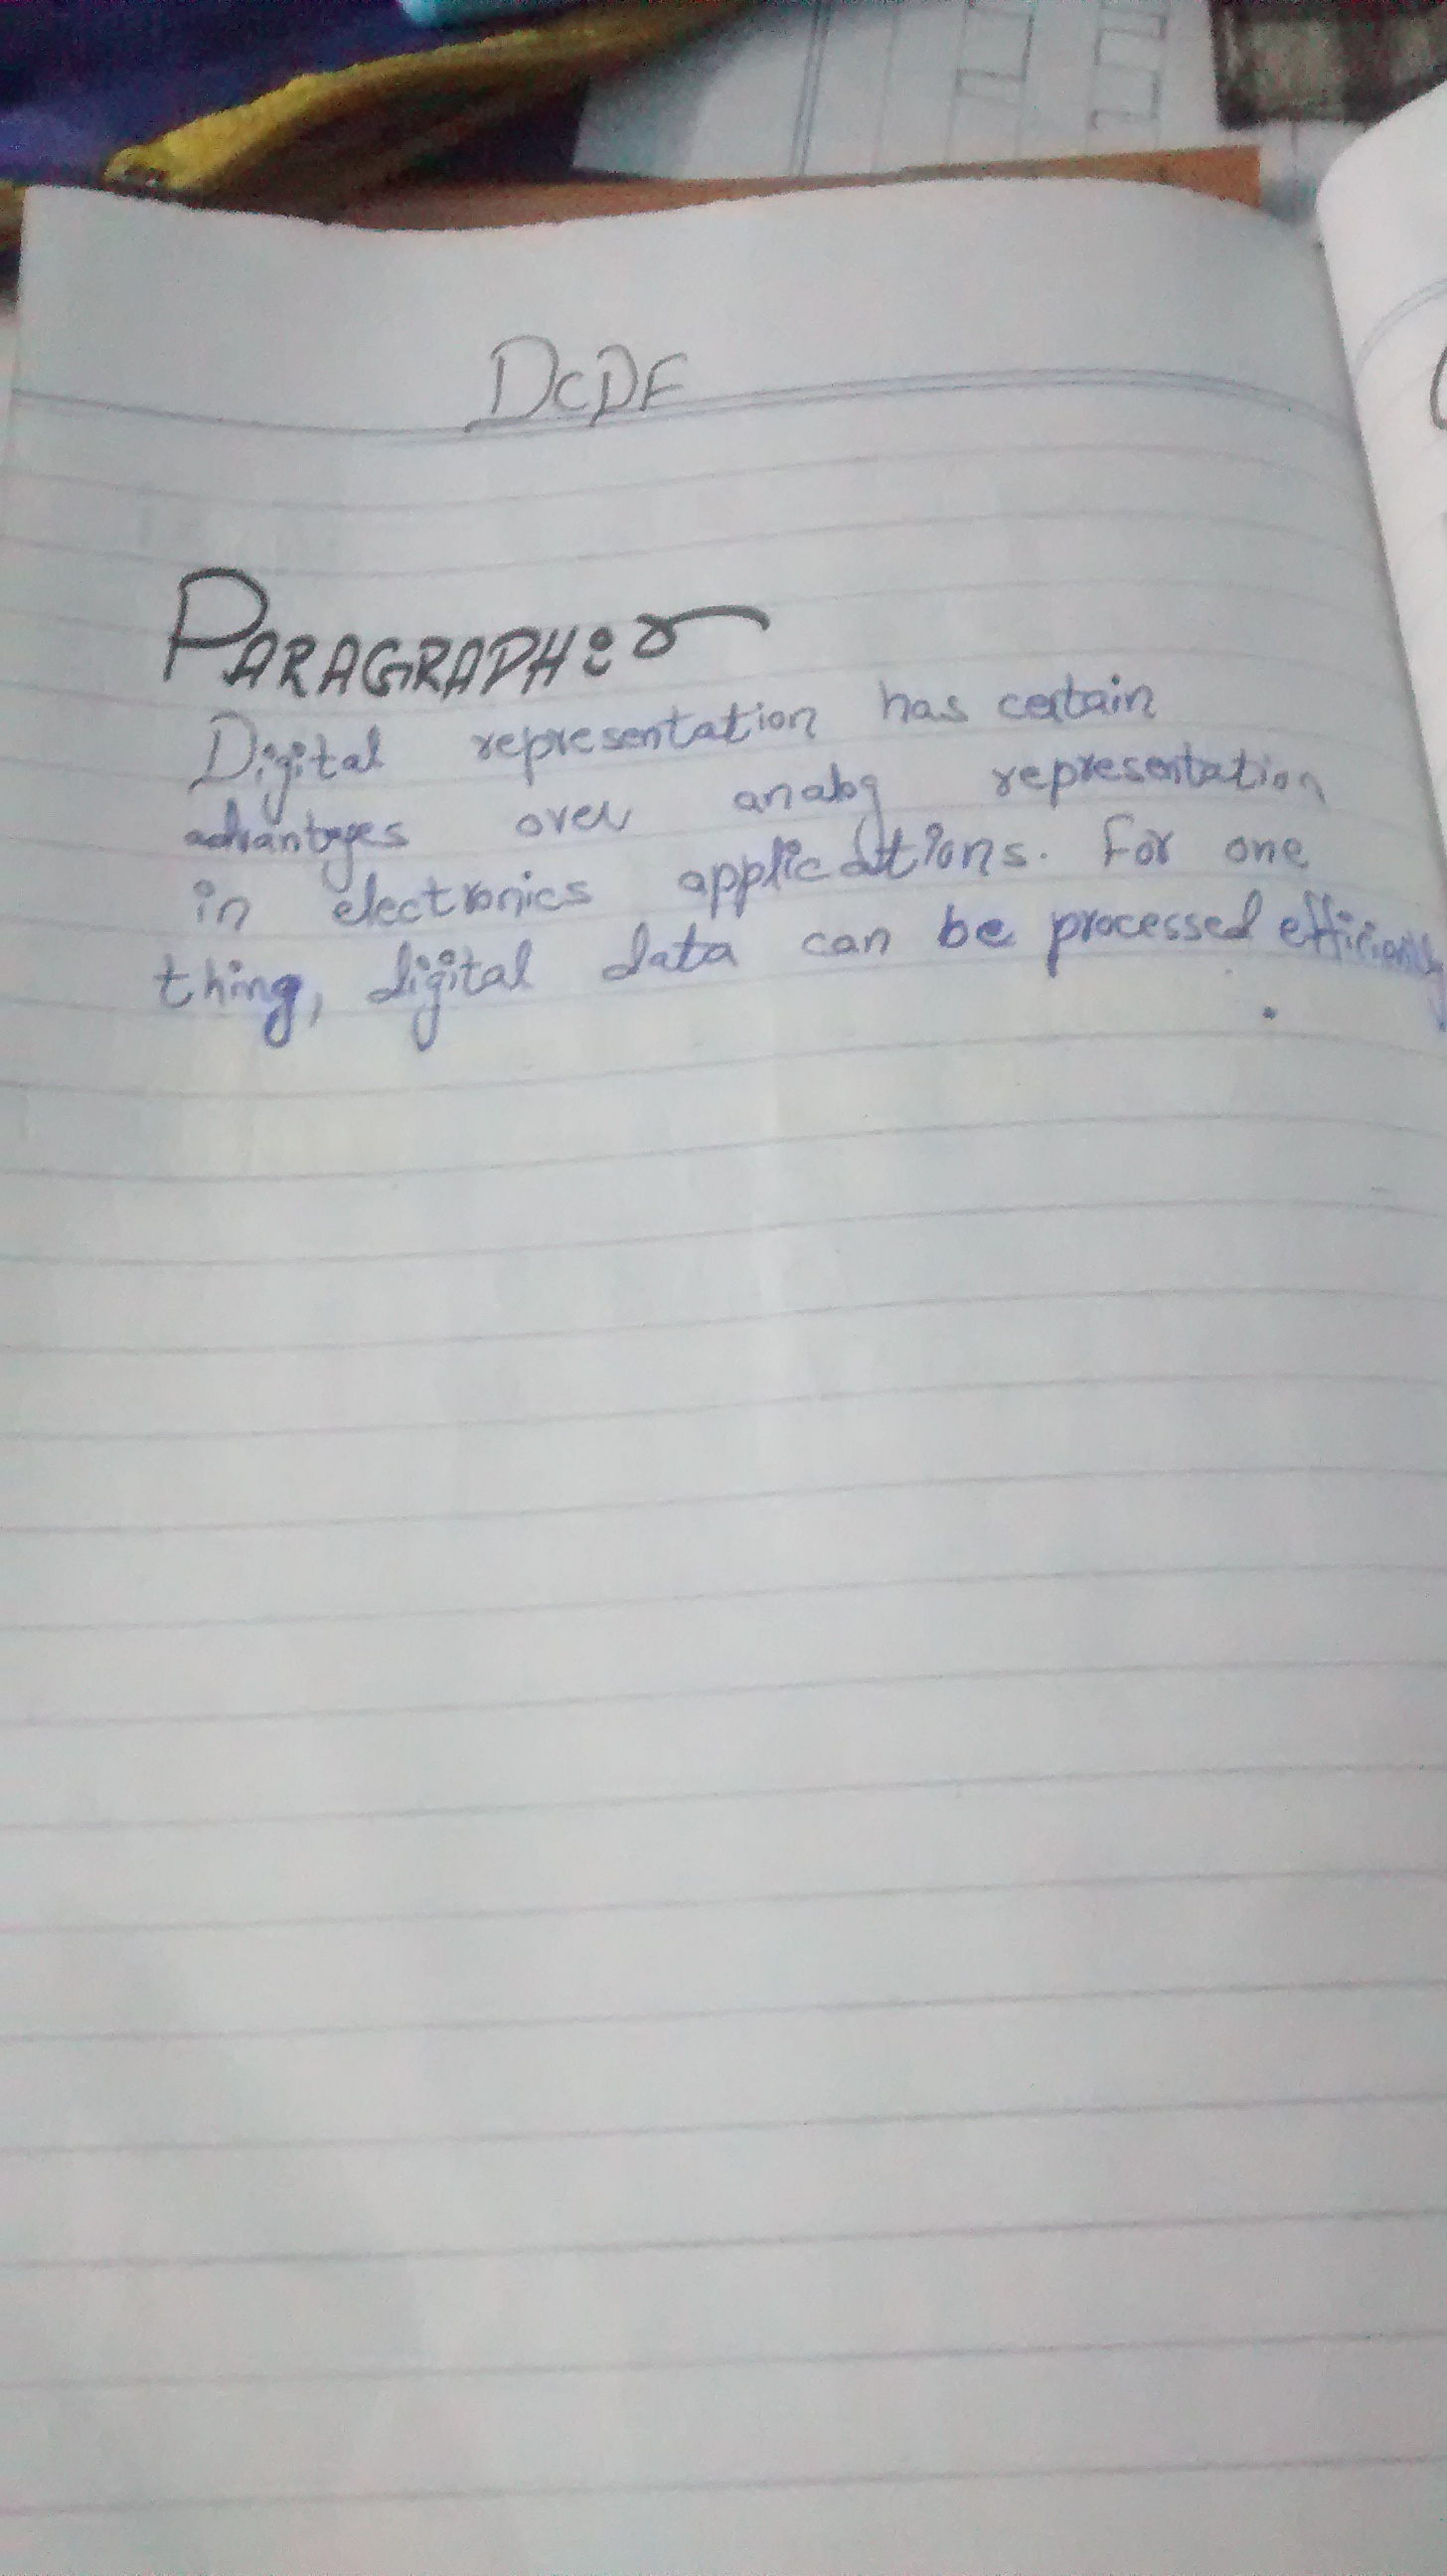 DCDF
PARAGRAPH:
Digital representation has certain
advantages over analog representation
in electronics applications. For one
thing, digital data can be processed efficiently